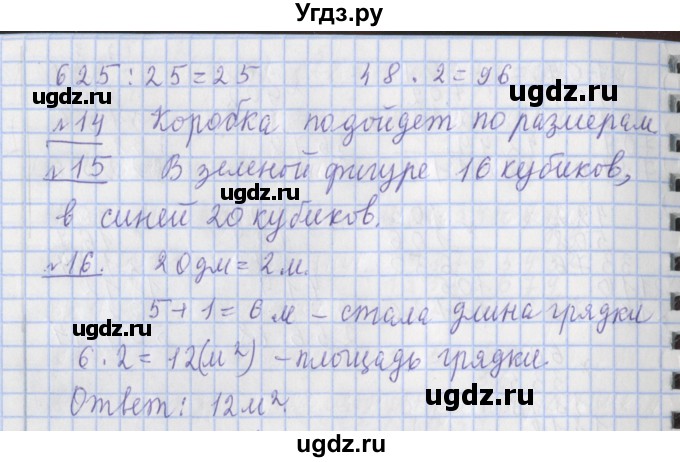 Угдз.ру
625:25=25 48·2=96
№14 Коробка подойдет по размерам
№15 В зеленой фигуре 16 кубиков,
в синей 20 кубиков.
№16. 20дм=2м.
5+1=6 м – стала длина грядки
6·2=12(м²) – площадь грядки.
Ответ: 12м².
ugdz.ru
ugdz.ru
ugdz.ru
ugdz.ru
ugdz.ru
ugdz.ru
ugdz.ru
ugdz.ru